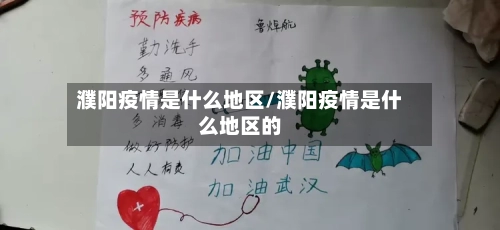 预防疾病
鲁焯航
勤洗手
多通风
濮阳疫情是什么地区/濮阳疫情是什
么地区的
多消毒
做好防护
人人有责
加油中国
加油武汉